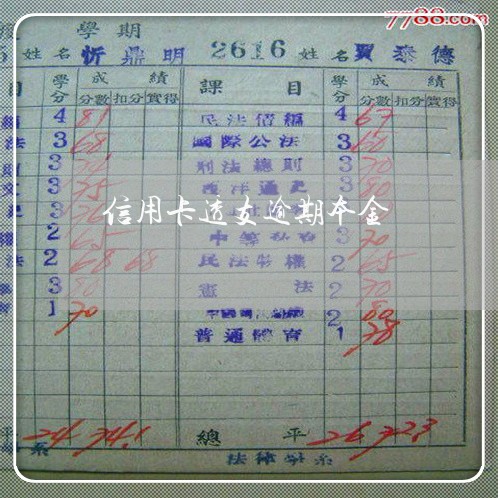 7788.com
學期
姓名 忻鼎明 2616 姓名 賈泰德
目 學分 成績 課目 學分 成績
分數 扣分 實得 分數 扣分 實得
4 81 民法債編 4 67
法 3 68 國際公法 3 60
3 刑法總則 3 70
3 75 西洋通史 3 80
信用卡透支逾期本金
2 65 3 70
法 2 68 68 民法物權 2 65
3 80 憲法 2 70
1 70 2 80
普通體育 1 78
24 74.1 總平 26 72.3
系 法律學系